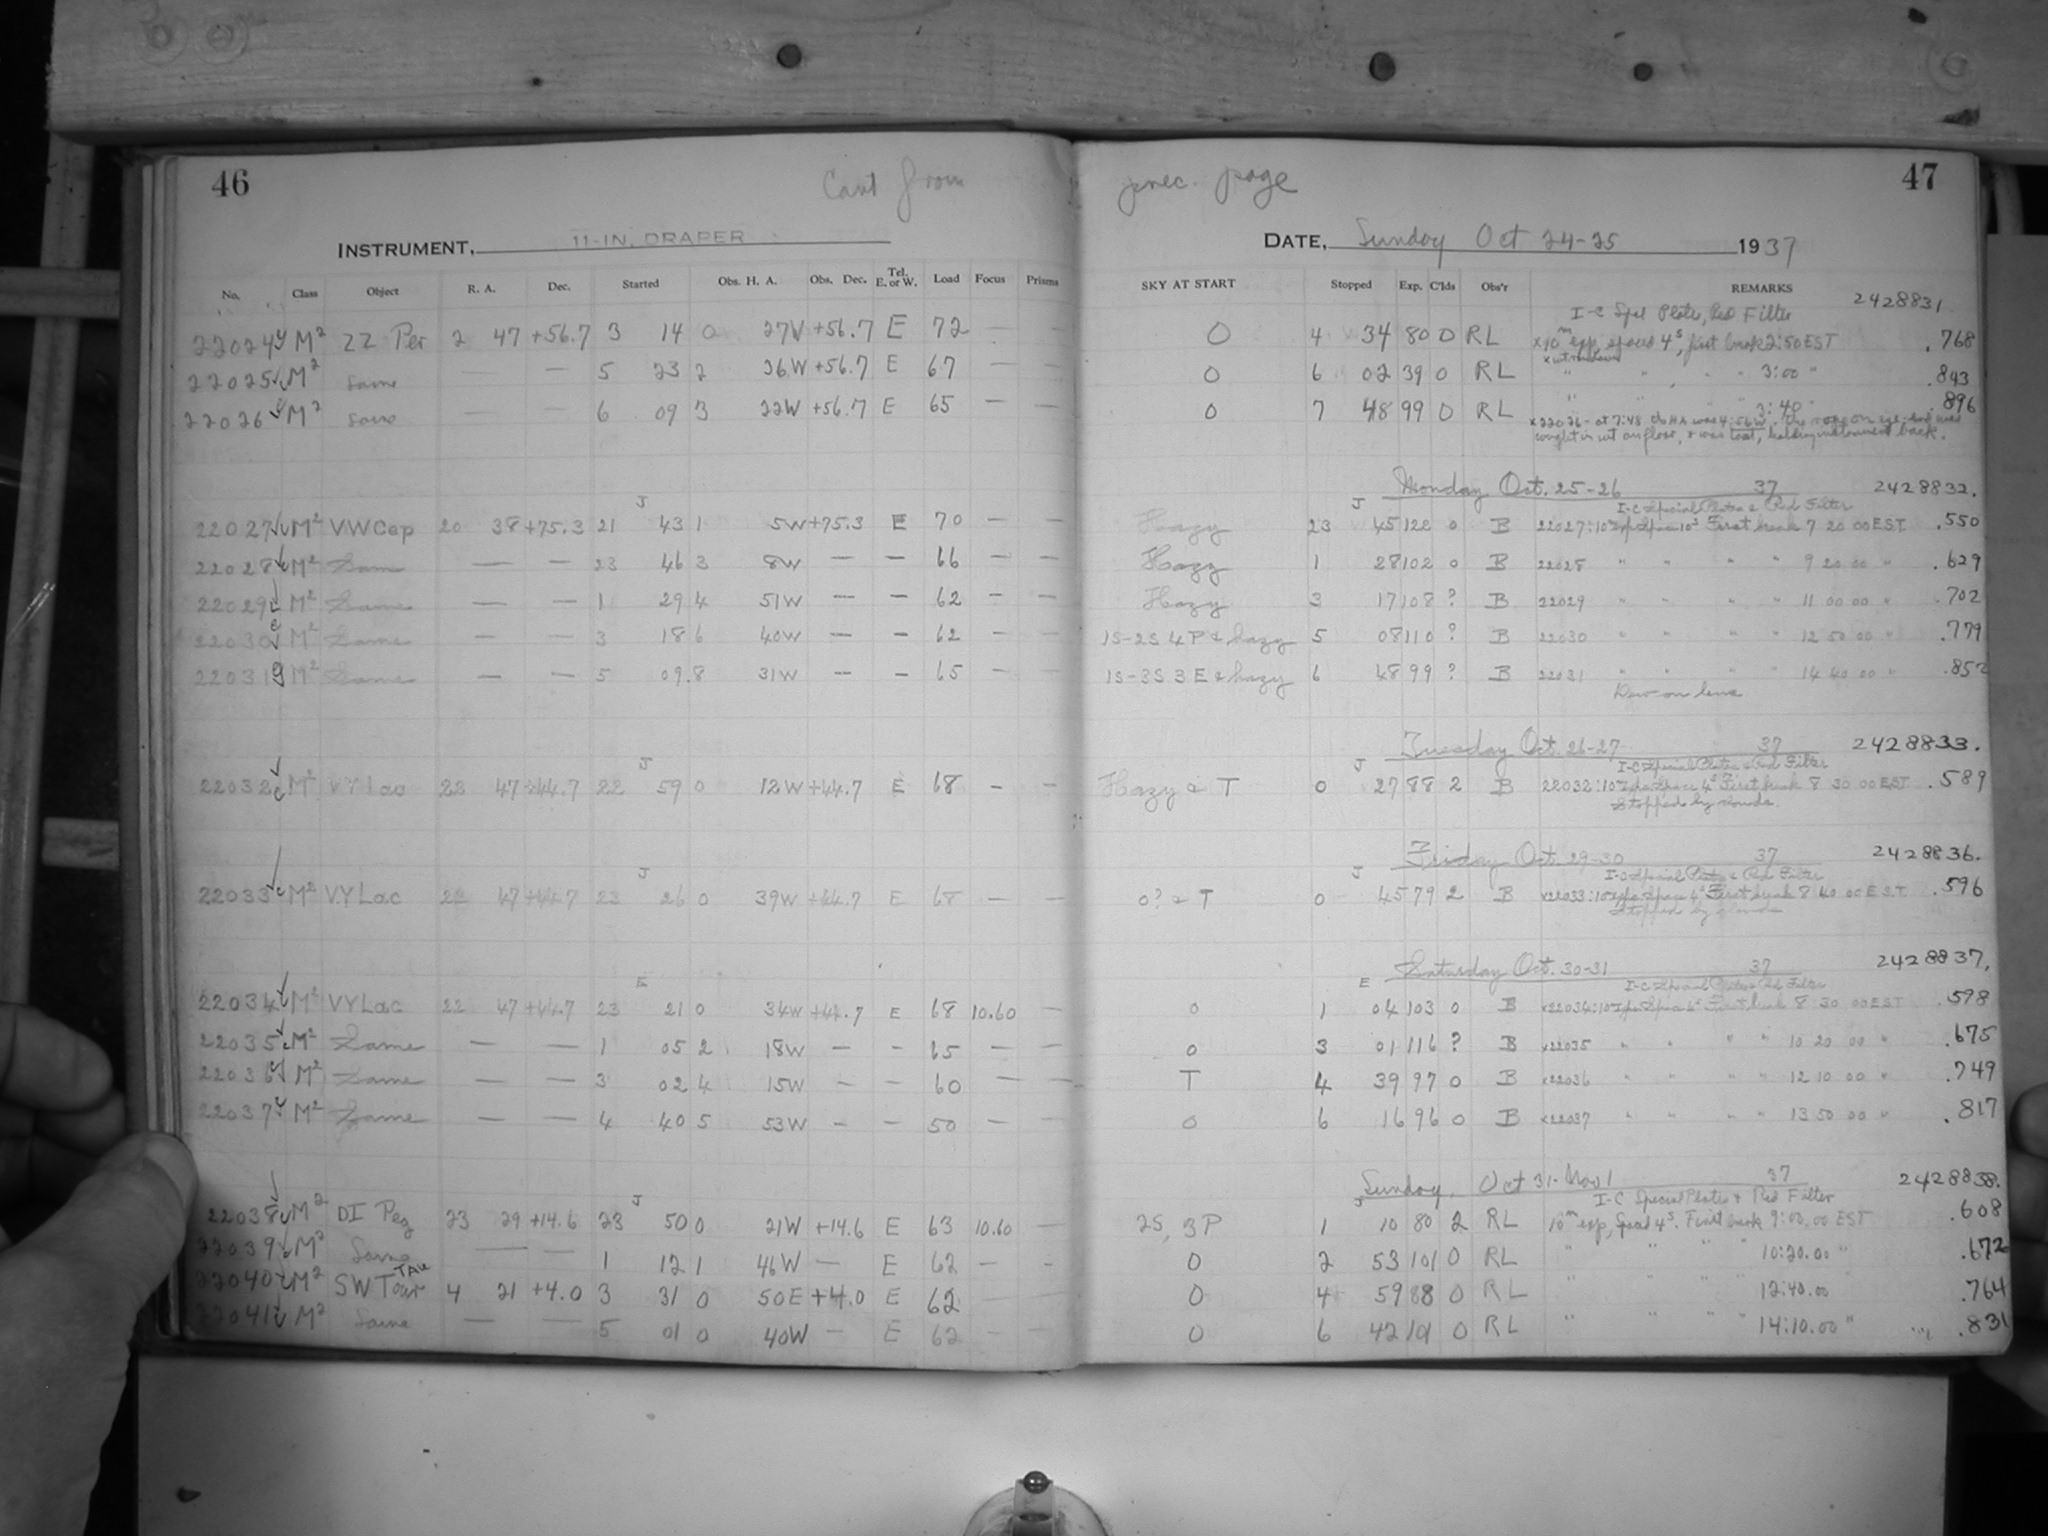 46 Cont from prec. page 47
INSTRUMENT, 11-IN. DRAPER DATE, Sunday Oct 24-25 1937
No. Class Object R. A. Dec. Started Obs. H. A. Obs. Dec. Tel. E. or W. Load Focus Prisms SKY AT START Stopped Exp. C'lds Obs'r REMARKS 2428831.
I-C Spel Plates, Red Filter
22024 M2 ZZ Per 2 47 +56.7 3 14 0 27W +56.7 E 72 — — 0 4 34 80 0 RL x10m exp, spaced 4s, first break 2:50 EST .768
22025 M2 Same — — 5 23 2 36W +56.7 E 67 — — 0 6 02 39 0 RL " " " " 3:00 " .843
22026 M2 Same — — 6 09 3 22W +56.7 E 65 — — 0 7 48 99 0 RL " " 3:40 .896
x22026 - at 7:48 the HA was 4:56W. The rope on
caught in on floor, & was taut, holding instrument back.
Monday Oct. 25-26 37 2428832.
I-C Special Plates & Red Filter
22027 M2 VW Cep 20 38 +75.3 J 21 43 1 5W +75.3 E 70 — — Hazy J 23 45 122 0 B 22027: 10m Exp Space 10s First break 7 20 00 EST .550
22028 M2 Same — — 23 46 3 8W — — 66 — — Hazy 1 28 102 0 B 22028 " " " " 9 20 00 " .629
22029 M2 Same — — 1 29 4 51W — — 62 — — Hazy 3 17 108 ? B 22029 " " " " 11 00 00 " .702
22030 M2 Same — — 3 18 6 40W — — 62 — — 1S-2S 4P & hazy 5 08 110 ? B 22030 " " " " 12 50 00 " .779
22031 M2 Same — — 5 09.8 31W — — 65 — — 1S-3S 3E & hazy 6 48 99 ? B 22031 " " " " 14 40 00 " .852
Dew on lens
Tuesday Oct. 26-27 37 2428833.
I-C Special Plates & Red Filter
22032 M2 VY Lac 22 47 +44.7 J 22 59 0 12W +44.7 E 68 — — Hazy & T J 0 27 88 2 B 22032: 10m Exp Space 4s First break 8 30 00 EST .589
Stopped by clouds.
Friday Oct. 29-30 37 2428836.
I-C Special Plates & Red Filter
22033 M2 VY Lac 22 47 +44.7 J 23 26 0 39W +44.7 E 68 — — 0? & T J 0 45 79 2 B x22033: 10m Exp Space 4s First break 8 40 00 EST .596
Stopped by clouds
Saturday Oct. 30-31 37 2428837.
I-C Special Plates & Red Filter
22034 M2 VY Lac 22 47 +44.7 E 23 21 0 34W +44.7 E 68 10.60 — 0 E 1 04 103 0 B x22034: 10m Exp Space 4s First break 8 30 00 EST .598
22035 M2 Same — — 1 05 2 18W — — 65 — — 0 3 01 116 ? B x22035 " " " " 10 20 00 " .675
22036 M2 Same — — 3 02 4 15W — — 60 — — T 4 39 97 0 B x22036 " " " " 12 10 00 " .749
22037 M2 Same — — 4 40 5 53W — — 50 — — 0 6 16 96 0 B x22037 " " " " 13 50 00 " .817
Sunday, Oct 31-Nov 1 37 2428838.
I-C Special Plates & Red Filter
22038 M2 DI Peg 23 29 +14.6 J 23 50 0 21W +14.6 E 63 10.60 — 2S, 3P J 1 10 80 2 RL 10m exp, Spaced 4s. First break 9:00.00 EST .608
22039 M2 Same — — 1 12 1 46W — E 62 — - 0 2 53 101 0 RL " " " 10:20.00 " .672
22040 M2 SW Taur TAU 4 21 +4.0 3 31 0 50E +4.0 E 62 — — 0 4 59 88 0 RL " " " " 12:40.00 .764
22041 M2 Same — — 5 01 0 40W — E 62 — — 0 6 42 101 0 RL " " " " 14:10.00 " .831